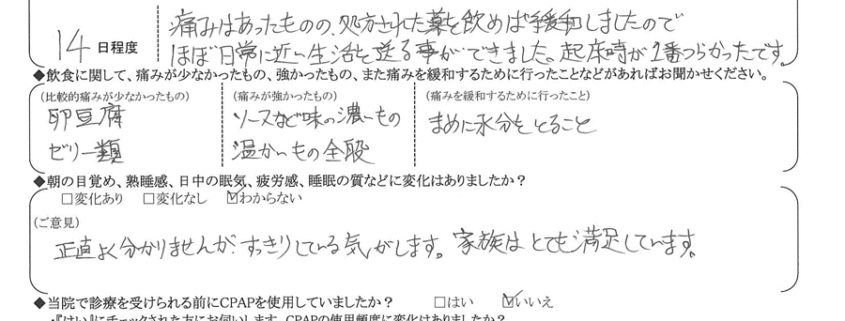 14 日程度
痛みはあったものの、処方された薬を飲めば緩和しましたので
ほぼ日常に近い生活を送る事ができました。起床時が1番つらかったです。
◆飲食に関して、痛みが少なかったもの、強かったもの、また痛みを緩和するために行ったことなどがあればお聞かせください。
(比較的痛みが少なかったもの)
卵豆腐
ゼリー類
(痛みが強かったもの)
ソースなど味の濃いもの
温かいもの全般
(痛みを緩和するために行ったこと)
まめに水分をとること
◆朝の目覚め、熟睡感、日中の眠気、疲労感、睡眠の質などに変化はありましたか？
□変化あり □変化なし ☑わからない
(ご意見)
正直よく分かりませんが、すっきりしている気がします。家族はとても満足しています。
◆当院で診療を受けられる前にCPAPを使用していましたか？ □はい ☑いいえ
*『はい』にチェックされた方にお伺いします。CPAPの使用頻度に変化はありましたか？